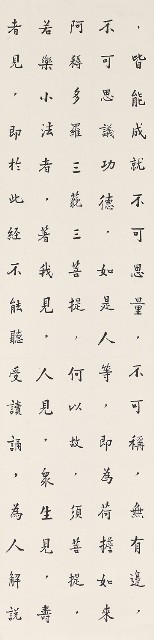 ，皆能成就不可思量，不可稱，無有邊，
不可思議功德，如是人等，即為荷擔如來
阿耨多羅三藐三菩提，何以故，須菩提，
若樂小法者，著我見，人見，眾生見，壽
者見，即於此經不能聽受讀誦，為人解說